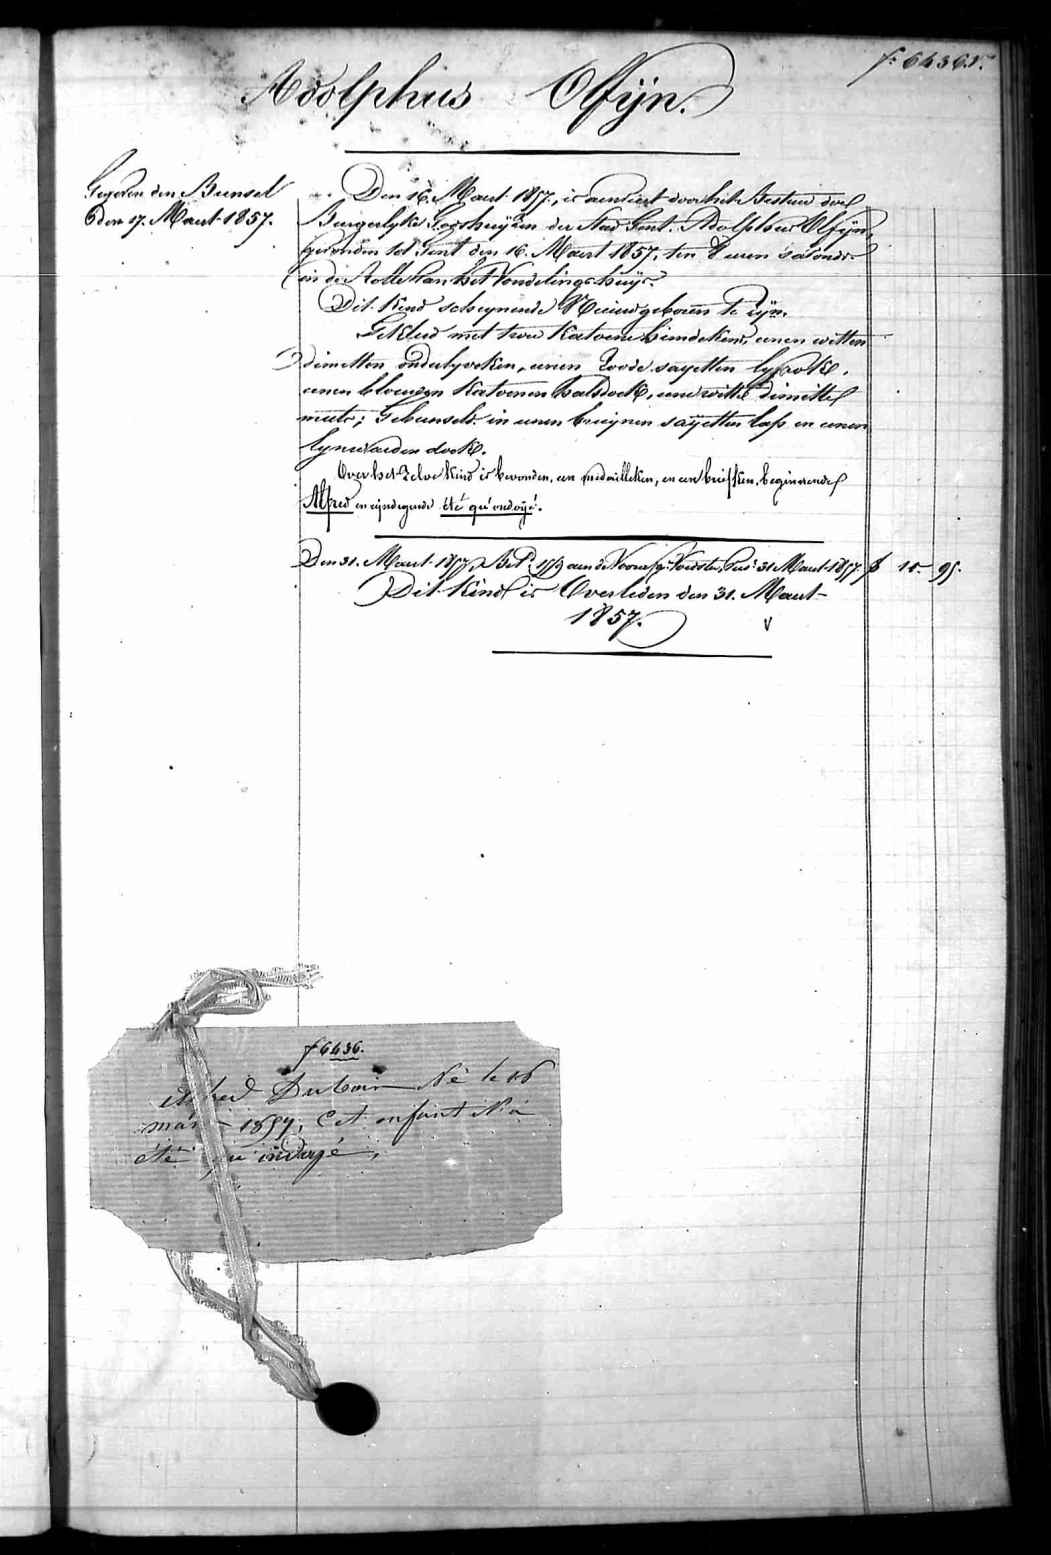 f° 6436.V.
Adolphus Olfijn.
Gegeven den Bunsel
den 17. Maart 1857.
Den 16. Maart 1857, is aenveird door het Bestier der
Burgerlyke Godshuyzen der Stad Gent. Adolphus Olfijn,
gevonden tot Gent den 16. Maart 1857, ten 8 uren s'avonds
in de Rolle van het Vondelingshuys.
Dit Kind schynende Nieuwgeboren te zyn.
Gekleed met twee Katoene hemdekens, eenen witten
dimetten onderlyveken, eenen Roode sayetten lyfrok,
eenen bloeuwen Katoenen halsdoek, eene witte dimitte
muts; Gebunseld in eenen bruynen sayetten lap en eenen
lynwaeden doek.
Over het zelve Kind is bevonden, een medailleken, en een briefken, beginnende
Alfred en eyndigende été qu'ondoyé.
Den 31. Maart 1857, Bet. 1179 aen de Voorsz. Voedster, tot 31 Maart 1857. 1 95.
Dit Kind is Overleden den 31. Maart
1857.
f 6436.
Alfred Dubois Né le 16
mars 1857, Cet enfant n'a
été que ondoyé,